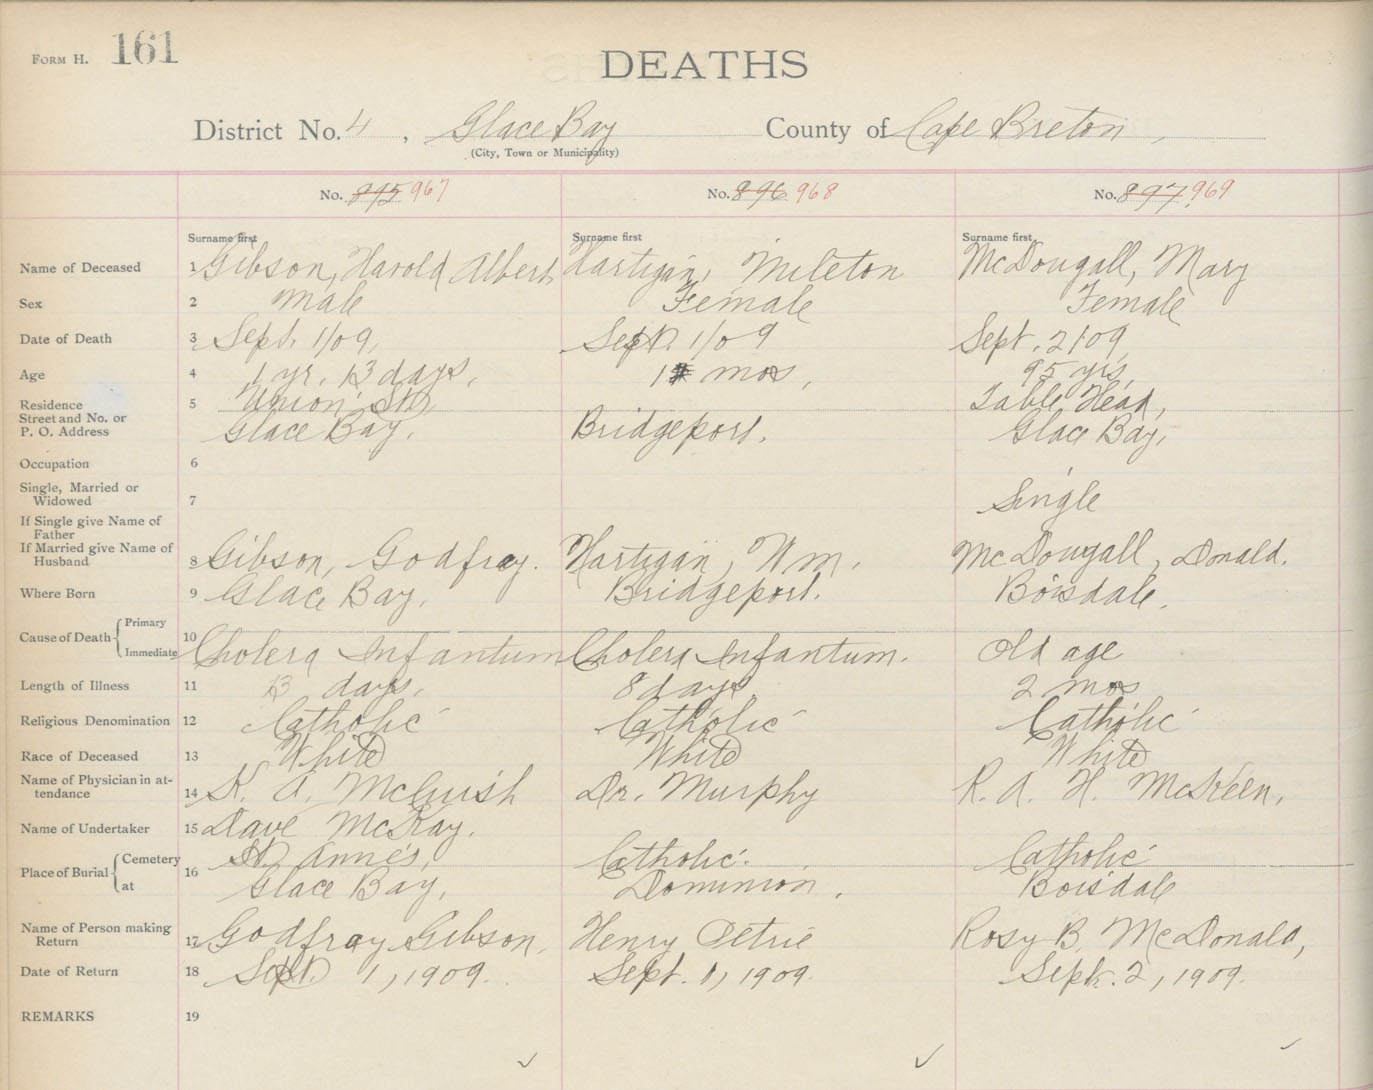 FORM H. 161
DEATHS
District No. 4, Glace Bay County of Cape Breton,
(City, Town or Municipality)
No. 895 967 No. 896 968 No. 897 969
Surname first Surname first Surname first
Name of Deceased 1 Gibson, Harold Albert Hartigan, Mileton McDougall, Mary
Sex 2 male Female Female
Date of Death 3 Sept. 1/09, Sept. 1/09 Sept. 2/09
Age 4 1 yr. 13 days, 1 mos, 95 yrs,
Residence 5 Union St, Table Head,
Street and No. or
P. O. Address Glace Bay. Bridgeport. Glace Bay,
Occupation 6
Single, Married or
Widowed 7 Single
If Single give Name of
Father
If Married give Name of
Husband 8 Gibson, Godfray. Hartigan, Wm. McDougall, Donald.
Where Born 9 Glace Bay, Bridgeport. Boisdale.
Cause of Death Primary
Immediate 10 Cholera Infantum Cholera Infantum. Old age
Length of Illness 11 13 days. 8 days 2 mos
Religious Denomination 12 Catholic Catholic Catholic
Race of Deceased 13 White White White
Name of Physician in at-
tendance 14 K. A. McCuish Dr. Murphy R. A. H. McKeen,
Name of Undertaker 15 Dave McKay.
Place of Burial Cemetery 16 St. Anne's, Catholic. Catholic
at Glace Bay, Dominion, Boisdale
Name of Person making
Return 17 Godfray Gibson, Henry Petrie Rosy B. McDonald,
Date of Return 18 Sept. 1, 1909. Sept. 1, 1909. Sept. 2, 1909.
REMARKS 19